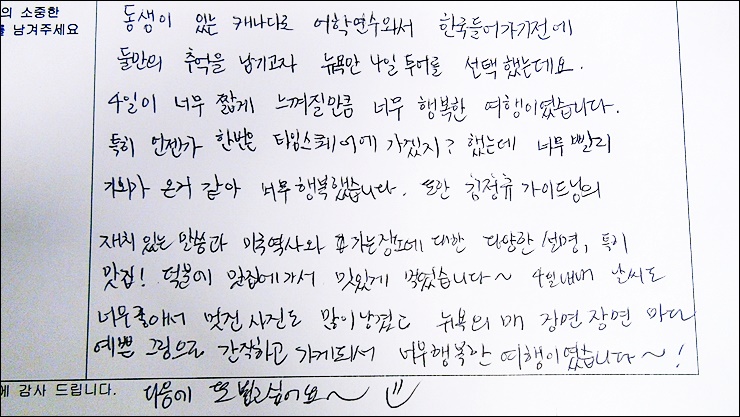 의 소중한
를 남겨주세요
동생이 있는 캐나다로 어학연수와서 한국들어가기전에
둘만의 추억을 남기고자 뉴욕만 4일 투어를 선택했는데요.
4일이 너무 짧게 느껴질만큼 너무 행복한 여행이였습니다.
특히 언젠가 한번은 타임스퀘어에 가겠지? 했는데 너무 빨리
기회가 온거 같아 너무행복했습니다. 또한 김정규 가이드님의
재치 있는 말씀과 미국역사와 가는장소에 대한 다양한 설명, 특히
맛집! 덕분에 맛집에가서 맛있게 먹었습니다~ 4일내내 날씨도
너무좋아서 멋진 사진도 많이남겼고 뉴욕의 매 장면 장면 마다
예쁜 그림으로 간직하고 가게되서 너무행복한 여행이였습니다~!
에 감사 드립니다. 다음에 또 뵙고싶어요~